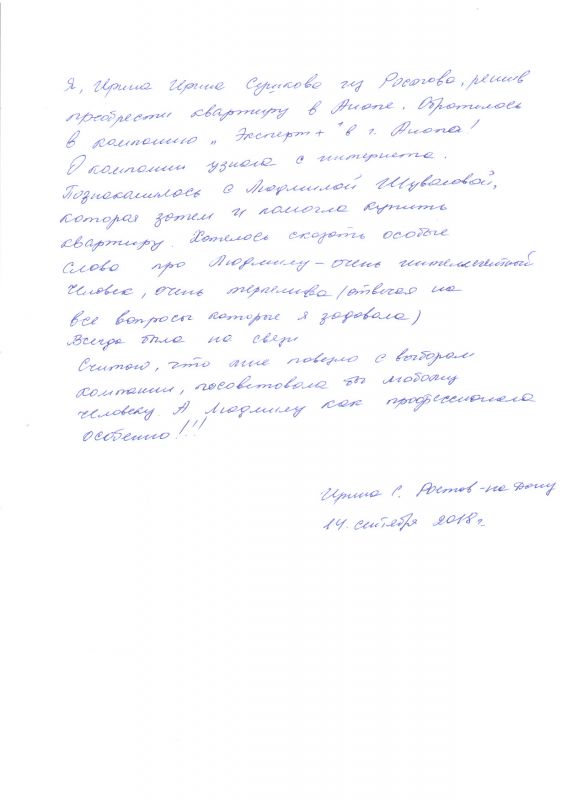 Я, Ирина Ирина Сушкова из Ростова, решив
преобрести квартиру в Анапе. Обратилась
в компанию „Эксперт+" в г. Анапа!
О компании узнала с интернета.
Познакомилась с Людмилой Шуваловой,
которая затем и помогла купить
квартиру. Хотелось сказать особые
слова про Людмилу – очень интелегентной
человек, очень терпелива (отвечая на
все вопросы которые я задавала)
Всегда была на связи
Считаю, что мне повезло с выбором
компании, посоветовала бы любому
человеку А Людмилу как профессионала
особенно!!!
Ирина С. Ростов-на Дону
14. сентября 2018 г.